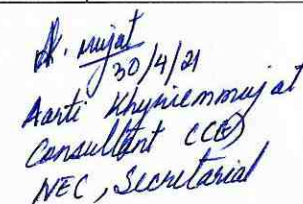 A. mujat
30/4/21
Aarti Khyriemmujat
Consultant CC(E)
NEC, Secretariat